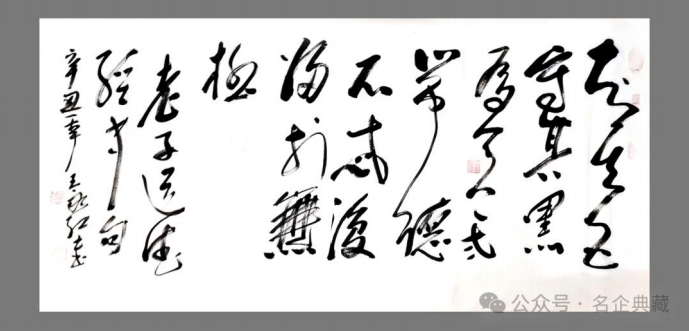 知其白
守其黑
為天下式
常德
不忒復
歸於無
極
老子道德
經句
辛丑年王書
公众号·名企典藏